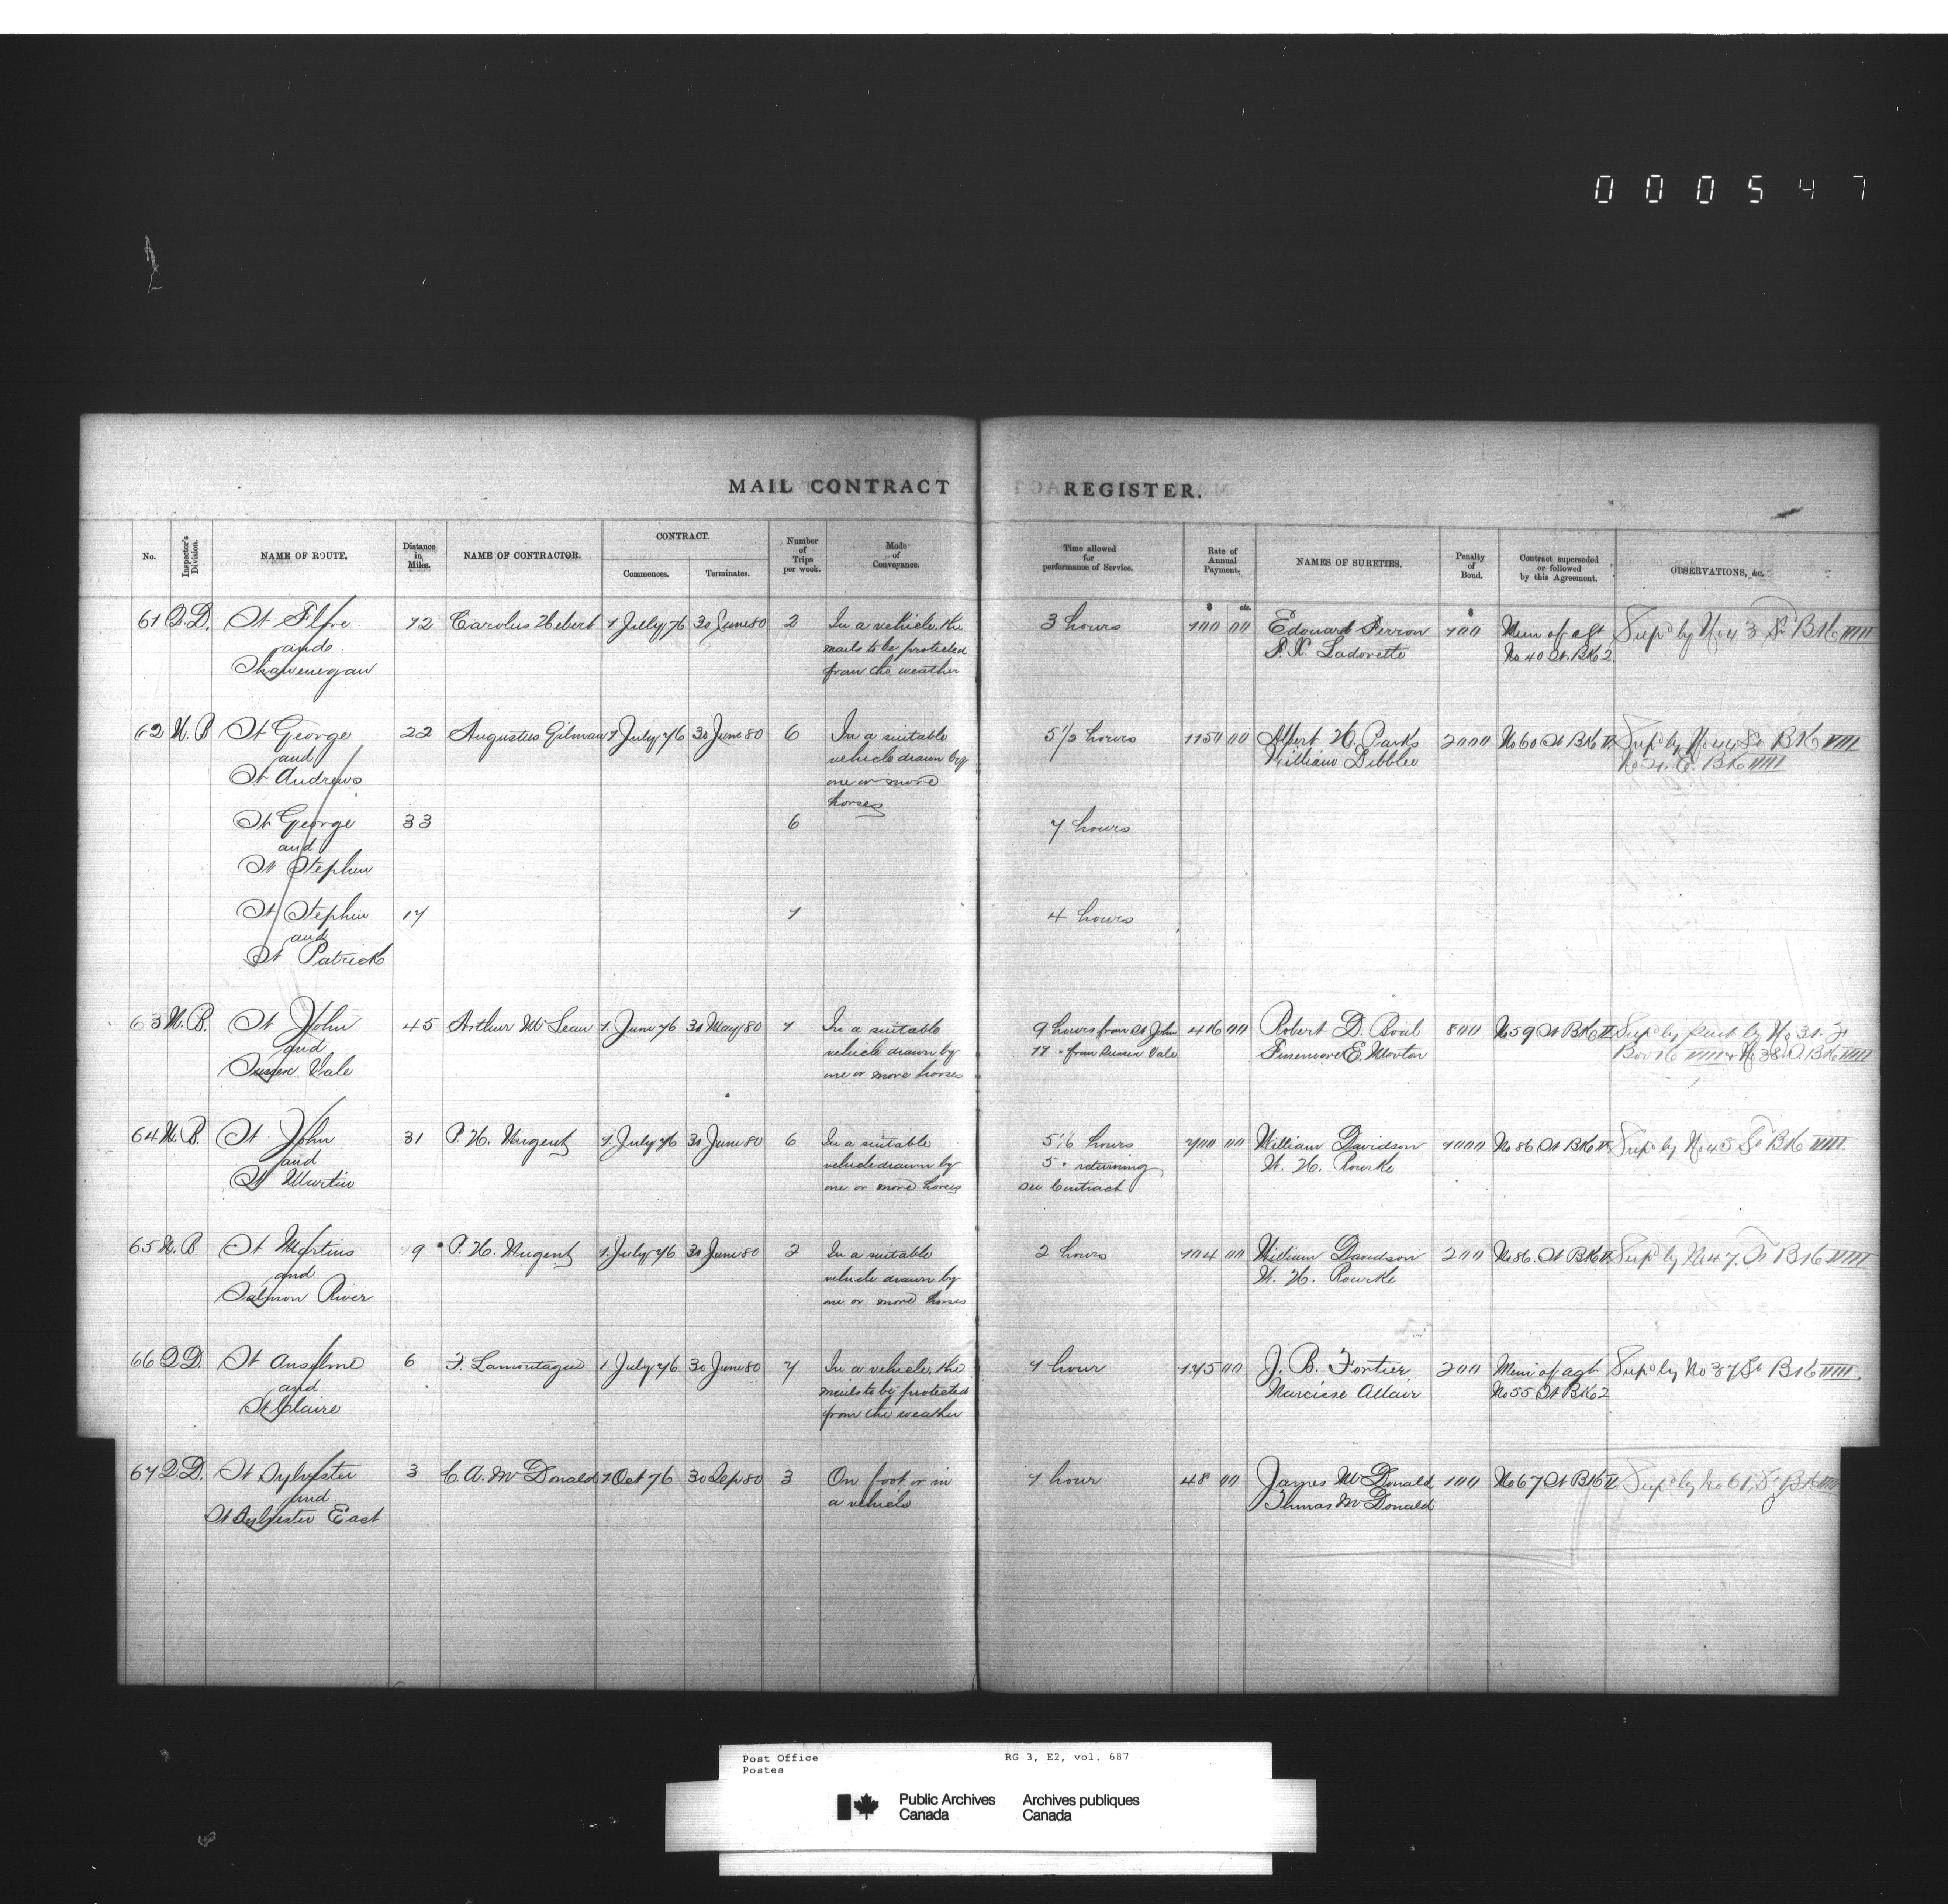 000547
MAIL CONTRACT REGISTER.
No. Inspector's Division. NAME OF ROUTE. Distance in Miles. NAME OF CONTRACTOR. CONTRACT. Commences. Terminates. Number of Trips per week. Mode of Conveyance. Time allowed for performance of Service. Rate of Annual Payment. NAMES OF SURETIES. Penalty of Bond. Contract superseded or followed by this Agreement. OBSERVATIONS, &c.
$ cts. $
61 Q.D. St Flore 12 Carolus Hebert 1 July 76 30 June 80 2 In a vehicle, the 3 hours 100 00 Edouard Perron 100 Mem of agt Supd by No 43 St Bk VIIII
and mails to be protected No 40 St. Bk 2
Shawenegan from the weather
62 N.B St George 22 Augustus Gilman 1 July 76 30 June 80 6 In a suitable 5 1/2 hours 1150 00 Albert H. Parks 2000 No 60 St Bk II Supd by No 44 St Bk VIIII
and vehicle drawn by William Dibblee Bk VIIII
St Andrews one or more
horses
St George 33 6 7 hours
and
St Stephen
St Stephen 17 1 4 hours
and
St Patrick
63 N.B. St John 45 Arthur McLean 1 June 76 31 May 80 1 In a suitable 9 hours from St John 416 00 Robert D. 800 No 59 St Bk II Supd by part by No 31
and vehicle drawn by 11 " from Sussex Vale E. Morton Book VIIII & No 38 Bk VIIII
Sussex Vale one or more horses
64 N.B. St John 31 P. H. Nugent 1 July 76 30 June 80 6 In a suitable hours 700 00 William Davidson 1000 No 86 St Bk II Supd by No 45 St Bk VIIII
and vehicle drawn by 5 " returning W. H. Rourke
St Martin one or more horses see Contract
65 N.B St Martins 9 P. H. Nugent 1 July 76 30 June 80 2 In a suitable 2 hours 104 00 William Davidson 200 No 86 St Bk II Supd by No 47 St Bk VIIII
and vehicle drawn by W. H. Rourke
Salmon River one or more horses
66 Q.D. St Anselme 6 F. Lamontagne 1 July 76 30 June 80 7 In a vehicle, the 1 hour 00 J. B. Fortier, 200 Mem of agt Supd by No 37 St Bk VIIII.
and mails to be protected Narcisse Allair No 55 St Bk 2
St Claire from the weather
67 Q.D. St Sylvester 3 C. A. McDonald 1 Oct 76 30 Sep 80 3 On foot or in 1 hour 48 00 James McDonald 100 No 67 St Bk II Supd by No 61, St Bk VIIII
and a vehicle Thomas McDonald
St Sylvester East
Post Office RG 3, E2, vol. 687
Postes
Public Archives Archives publiques
Canada Canada